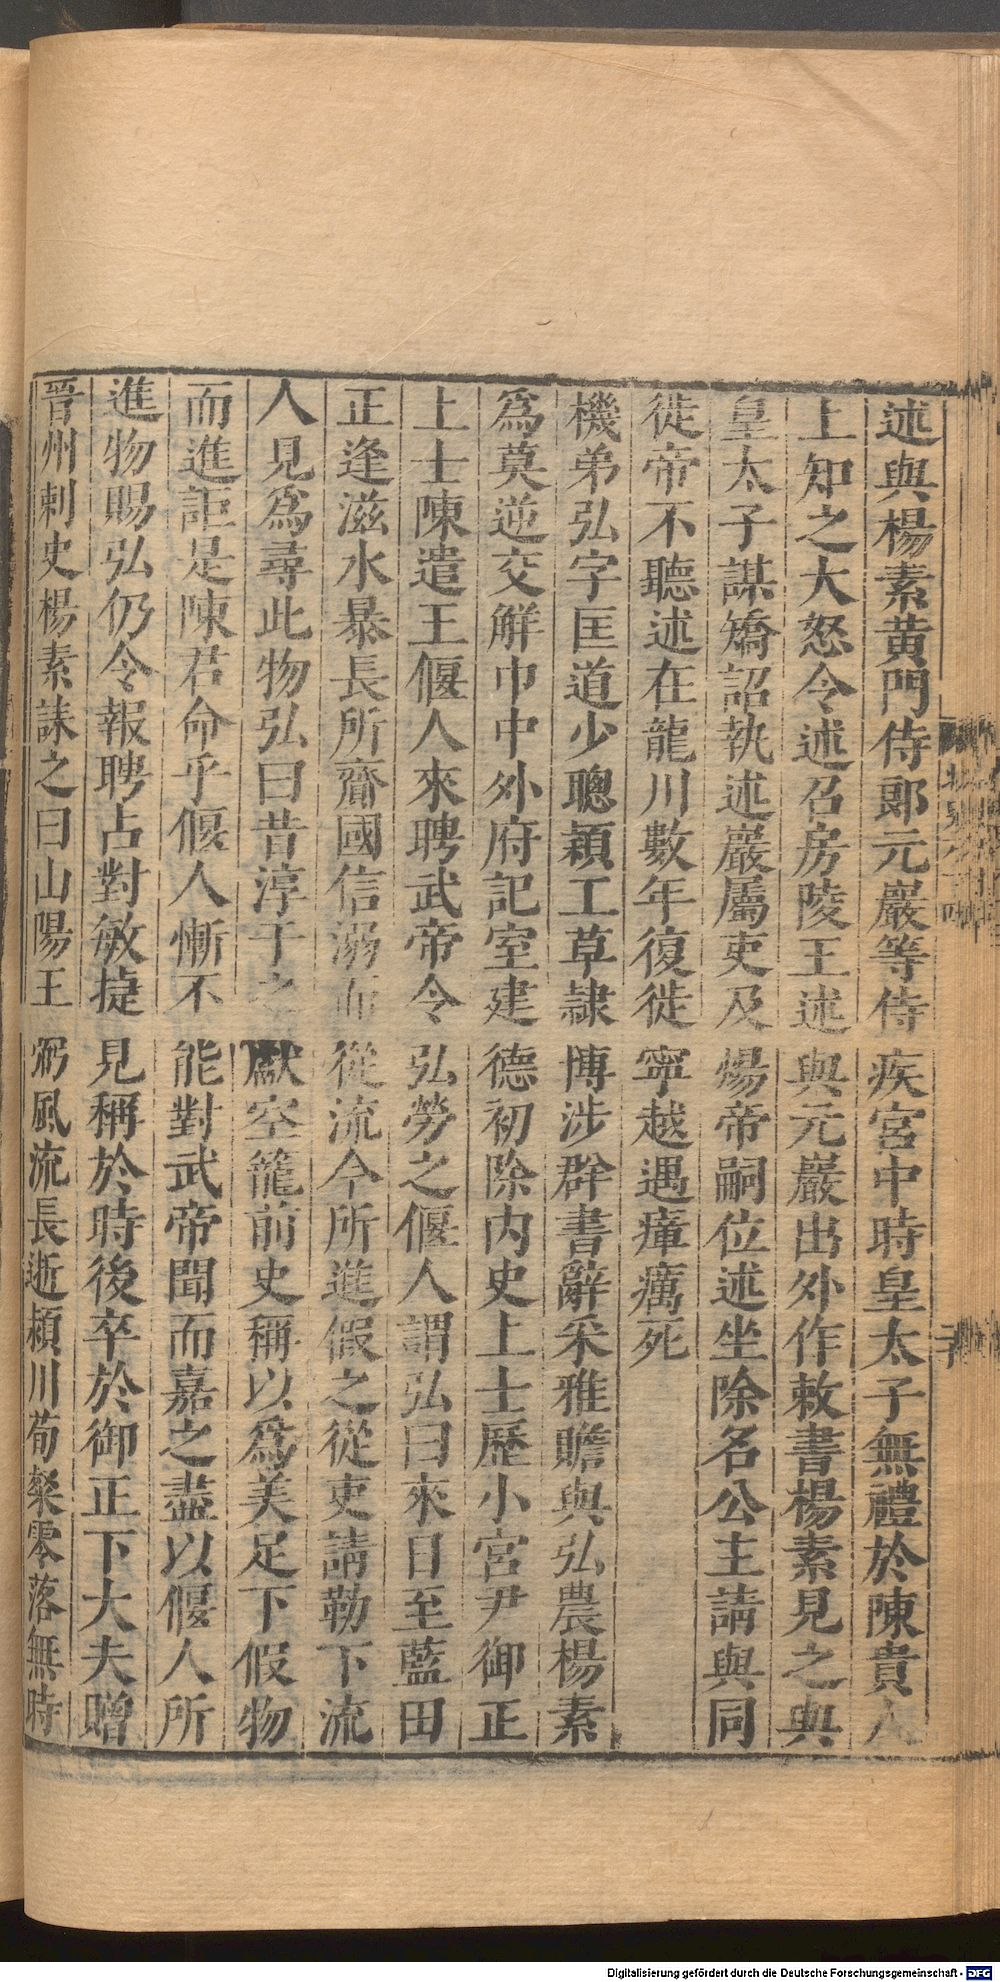 述與楊素黃門侍郞元巖等侍疾宮中時皇太子無禮於陳貴人
上知之大怒令述召房陵王述與元巖出外作敕書楊素見之與
皇太子謀矯詔執述巖屬吏及煬帝嗣位述坐除名公主請與同
徙帝不聽述在龍川數年復徙寧越遇瘴癘死
機弟弘字匡道少聰穎工草隷博涉群書辭采雅贍與弘農楊素
爲莫逆交解巾中外府記室建德初除內史上士歷小宮尹御正
上士陳遣王偃人來聘武帝令弘勞之偃人謂弘曰來日至藍田
正逢滋水暴長所齎國信溺而從流今所進假之從吏請勒下流
人見爲尋此物弘曰昔淳于之獻空籠前史稱以爲美足下假物
而進詎是陳君命乎偃人慚不能對武帝聞而嘉之盡以偃人所
進物賜弘仍令報聘占對敏捷見稱於時後卒於御正下大夫贈
晉州刺史楊素誄之曰山陽王弼風流長逝穎川荀粲零落無時
Digitalisierung gefördert durch die Deutsche Forschungsgemeinschaft - DFG